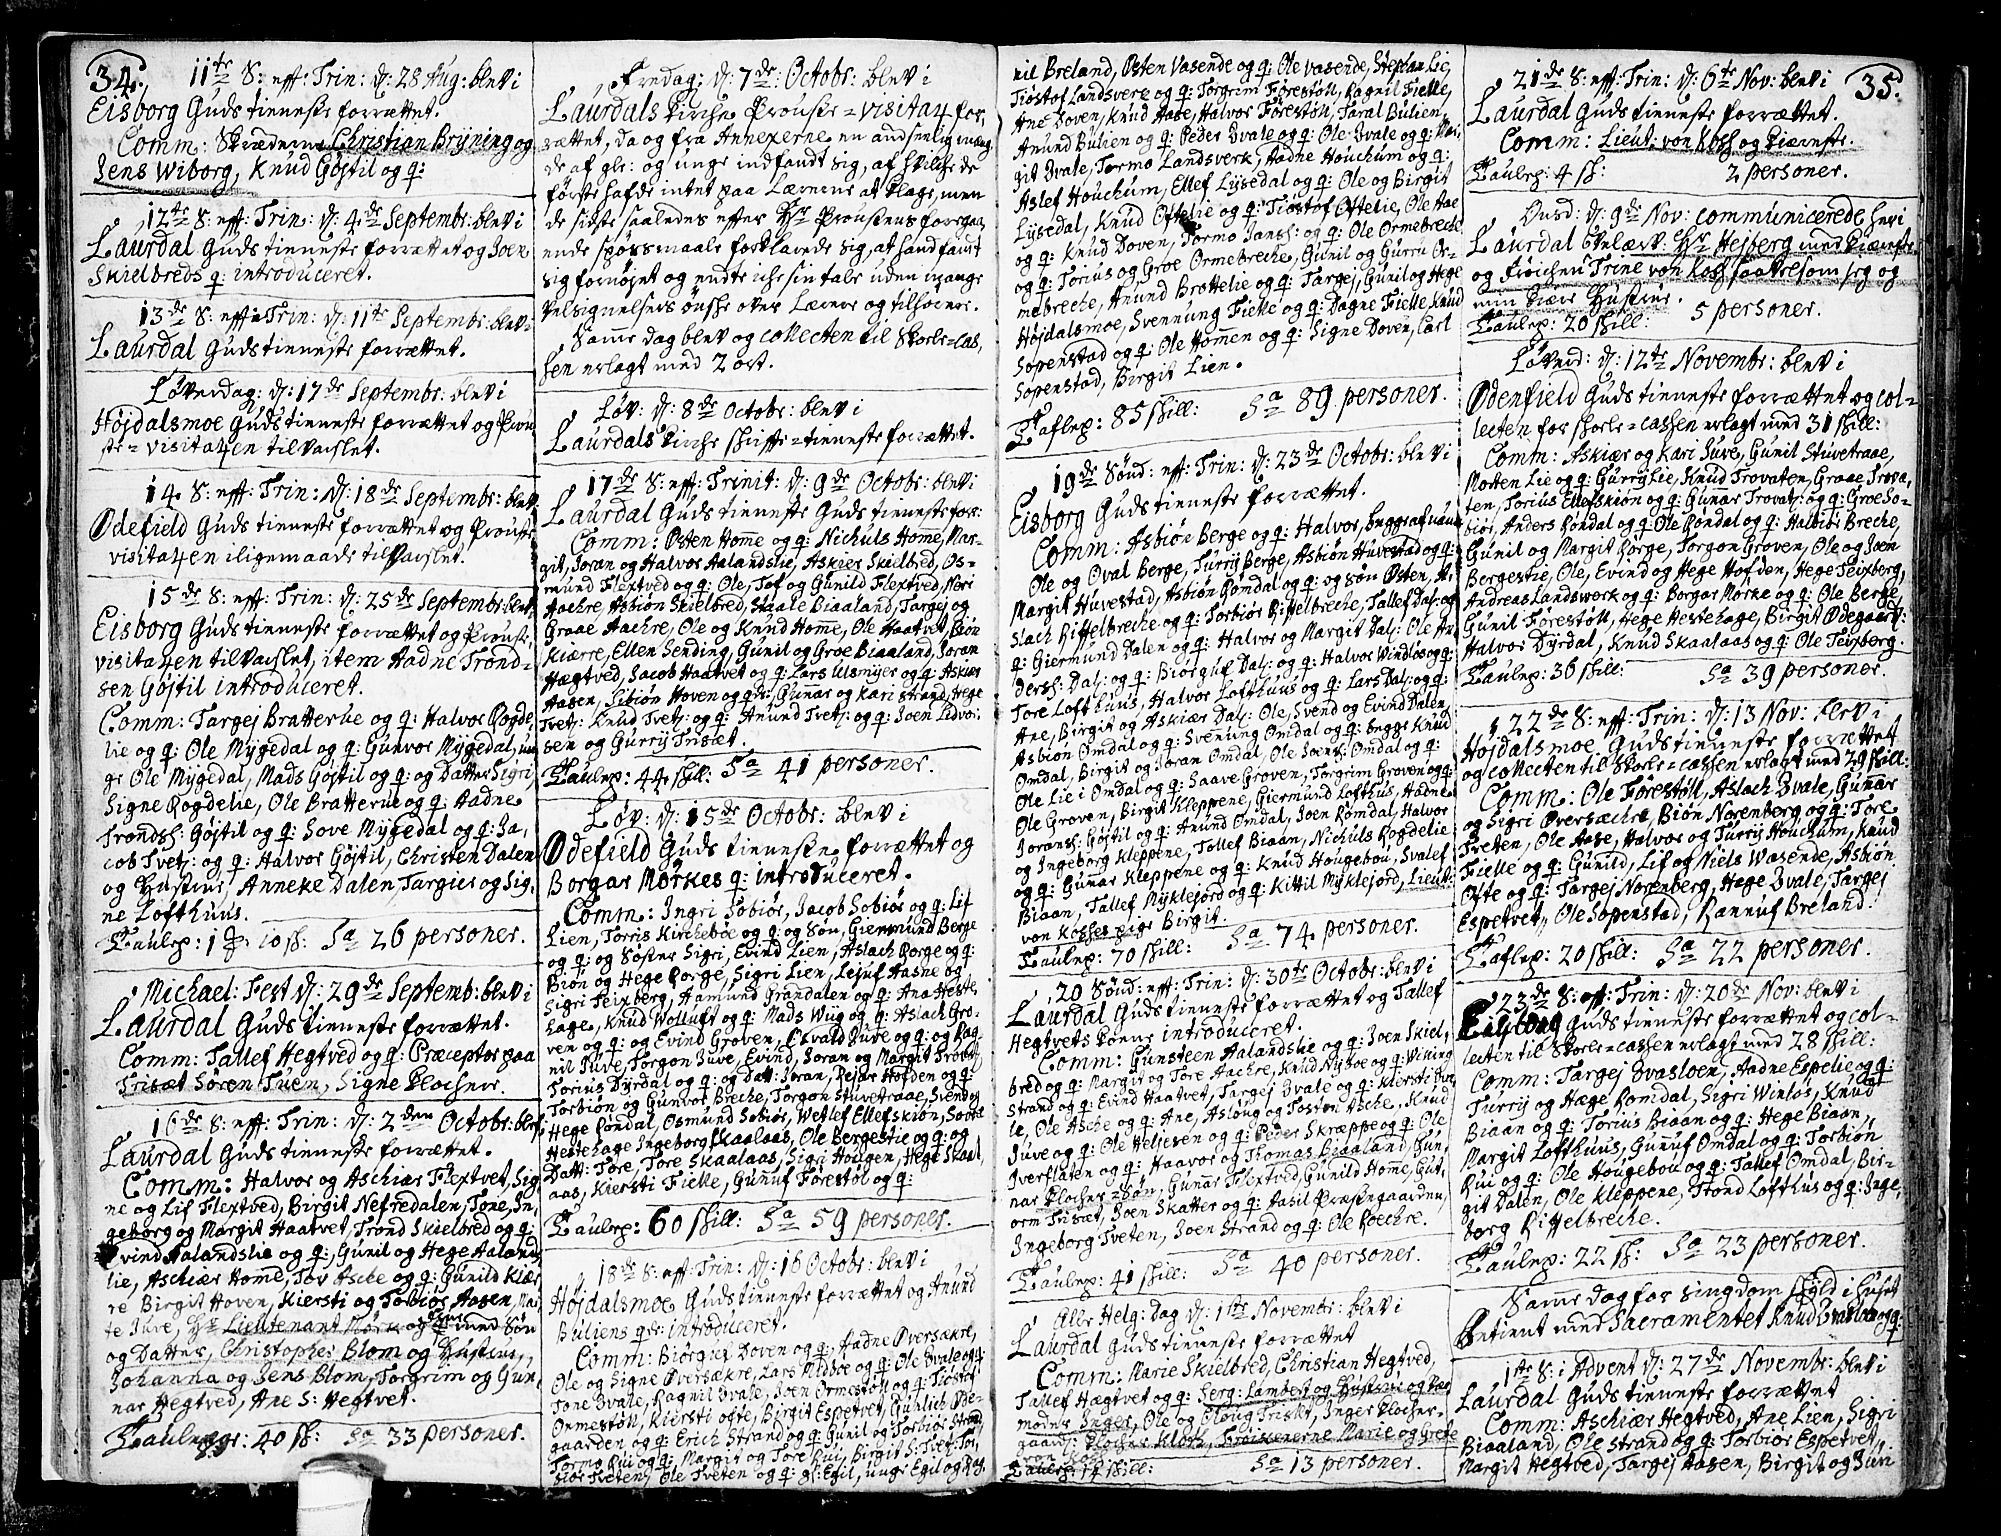 34.
11te S: eff: Trin: d: 28 Aug: blev i
Eisborg Guds tienneste forrættet.
Comm: Skrædern Christian Bryning og
Jens Wiborg, Knud Göjtil og q:
12te S: eff: Trin: d: 4de Septembr: blev i
Laurdal Guds tienneste forrættet og Joen
Skielbreds q: introduceret.
13de S: eff: Trin: d: 11te Septembr: blev i
Laurdal Guds tienneste forrættet.
Löverdag: d: 17de Septembr: blev i
Höjdalsmoe Guds tienneste forrættet og Prou
ste-visitatzen til varslet.
14. S: eff: Trin: d: 18de Septembr: blev i
Ödefield Guds tienneste forrættet og Prouste
visitatzen iligemaade til varslet.
15de S: eff: Trin: d: 25de Septembr: blev i
Eisborg Guds tienneste forrættet og Prouste
visitatzen til varslet, item Aadne Trond-
sen Göjtil introduceret.
Comm: Targej Bratterue og q: Halvor Rogde
lie og q: Ole Mygedal og q: Gunvor Mygedal, un
ge Ole Mygedal, Mads Göjtil og q: og Datter Sigri,
Signe Rogdelie, Ole Bratterue og q: Aadne
Trondss: Göjtil og q: Sove Mygedal og q: Ja,
cob Tvetj: og q: Halvor Göjtil, Christen Dalen
og Hustrue, Anneke Dalen, Targier og Sig,
ne Lofthuus.
Taulep: 1 10 sk: Sa 26 personer.
Michael: Fest d: 29de Septemb: blev i
Laurdal Guds tienneste forrættet.
Comm: Tallef Hegtved og q: Præceptor paa
Trisæt Sören Tuen, Signe Klochuer.
16de S: eff: Trin: d: 2den Octobr: blev i
Laurdal Guds tienneste forrættet.
Comm: Halvor og Aschiær Flextvet, Sig
ne og Lif Flextved, Birgit Nefredalen, Tone, In,
geborg og Margit Haatvet, Trond Skielbred og q:
vind Aalandslie og q:, Gunil og Hege Aaland,
lie, Aschiær Home, Tov Asche og q: Gunild Kiær
re Birgit Hoven, Kiersti og Torbiör Aasen, Mar
te Juve, Hr Lieutenant Mörn og med Sön
og Datter, Christopher Blom og Hustrue,
Johanna og Jens Blom, Torgrim og Gun,
nar Hegtved, Ane S: Hegtvet.
Taulep: 40 sk: Sa 33 personer.
Fredag: d: 7de Octobr: blev i
Laurdals Kirche Prouste-visitatz for,
rættet, da og fra Annexerne en anseenlig mæng
de af gle: og unge indfandt sig, af hvilche de
förste hafde intet paa Lærerne at klage, men
de sidste saaledes efter Hr Proustens foregaa,
ende spörsmaale forklarede sig, at hand fandt
sig fornöjet og endte iche sin tale uden mange
velsignelsers önske over Lærere og tilhörere.
Samme dag blev og collecten til Skole-cas,
sen erlagt med 2 ort.
Löv: d: 8de Octobr: blev i
Laurdals Kirche skrifte-tienneste forrættet.
17de S: eff: Trinit: d: 9de Octobr: blev i
Laurdal Guds tienneste Guds tienneste forr:
Comm: Östen Home og q: Nichuls Home, Mar-
git, Joran og Halvor Aalandslie, Askier Skielbred, Os-
mund Flextved og q: Ole, Tof og Gunild Flextved, Meri
Aachre, Asbiön Skielbred, Staale Biaaland, Targej og
Graae Aachre, Ole og Knud Home, Ole Haatvet, Biön
Kiærre, Ellen Sending, Gunil og Groe Biaaland, Joran
Hægtved, Jacob Haatvet og q: Lars Ulsmyer og q: Askier
Aasen, Sibiön Hoven og q: Gunar og Kari Strand, Hege
Tvetj: Knud Tvetj: og q: Anund Tvetj: og q: Joen Ledvor:
sen og Gurry Trisæt.
Taulep: 44 skill: Sa 41 personer.
Löv: d: 15de Octobr: blev i
Ödefield Guds tienneste forrættet og
Borgar Mörkes q: introduceret.
Comm: Ingri Sobiör, Jacob Sobiör og q: Lif
Lien, Torris Kircheböe og q: og Sön, Giermund Berge
og q: og Söster Sigri, Evind Lien, Aslach Rorge og q:
Biön og Hege Rorge, Sigri Lien, Lejuf Aasne og
Sigri Teixberg, Aamund Grandalen og q: Ana Heste,
hage, Knud Wolluft og q: Mads Wug og q: Aslach Gro-
ven og q: og Evind Groven, Osvald Juve og q: og Rag
nil Juve, Torgon Juve, Evind, Joran og Margit Trovat
Torius Dyrdal og q: og Datt: Joran, Pejar Hofden og q:
Torbiön og Gunvor Breche, Torgon Stuvetraae, Svend og
Hege Röndal, Osmund Sobiör, Wetlef Ellefskiön, Soove
Hestehage Ingeborg Skaalaas, Ole Bergestie og q: og
Datt: Tore, Tore Skaalaas, Sigri Hougen, Hege Skaal,
aas, Kiersti Fielle, Gunuf Förestöl og q:
Taulep: 60 skill: Sa 59 personer.
18de S: eff: Trin: d: 16 Octobr: blev i
Höjdalsmoe Guds tienneste forrættet og Anund
Buliens q: introduceret.
Comm: Biörgief Doven og q: Aadne Översækre,
Ole og Signe Översækre, Lars Midböe og q: Ole Bvale og q:
Tone Bvale, Ragnil Bvale, Joen Ormestöll og q: Tiostof
Ormestöll, Kiersti ofte, Birgit Espetvet, Gunlich Öde-
gaarden og q: Erich Strand og q: Gunil og Torbiör Strand,
Tormo Rui og q: Margit og Tore Rui, Birgit S: Tvet: Tor,
biör Tveten, Ole Tveten og q: gl: Egil, unge Egil og Rag,
nil Breland, Östen Vasende og q: Ole Vasende, Stephan Lie,
Tiöstof Landsverk og q: Torgrim Förestöll, Ragnil Fielle,
Ane Doven, Knud Aase, Halvor Förestöll, Taral Bulien,
Anund Bulien og q: Peder Bvale og q: Ole Bvale og q: Mar
git Bvale, Tormo Landsverk, Aadne Houchum og q:
Aslef Houchum, Ellef Lysedal og q: Ole og Birgit
Lysedal, Knud Oftelie og q: Tiöstof Oftelie, Ole Aae
og q: Knud Doven, Tormo Janss: og q: Ole Ormebreche
og q: Torius og Groe Ormebreche, Gunil og Gurru Or-
mebreche, Anund Brottelie og q: Targej, Gunil og Hege
Höjdalsmoe, Svennung Fielle og q: Dagne Fielle Knud
Sopenstad og q: Ole Homen og q: Signe Doven, Carl
Sopenstad, Birgit Lien.
Taflep: 85 skill: Sa 89 personer.
19de Sönd: eff: Trin: d: 23de Octobr: blev i
Eisborg Guds tienneste forrættet.
Comm: Asbiör Berge og q: Halvor, begge af navn
Ole og Oval Berge, Turry Berge, Asbiön Huvestad og q:
Margit Huvestad, Asbiön Romdal og q: og Sön Östen, A,
slach Riffelbreche og q: Torbiör Riffelbreche, Tallef Dal: og
q: Giermund Dalen og q: Halvor og Margit Dal: Ole An,
derss: Dal: og q: Biörguf Dal: og q: Halvor Windlös og q:
Tore Lofthuus, Halvor Lofthuus og q: Lars Dal: og q:
Ane, Birgit og Askiær Dal: Ole, Svend og Evind Dalen
Asbiön Omdal og q: Svenung Omdal og q: begge Knud
Omdal, Birgit og Joran Omdal, Ole Joenss: Omdal og q:
Ole Lie i Omdal og q: Saave Groven, Torgrim Groven og q:
Ole Groven, Birgit Kleppene, Giermund Lofthus, Aadne
Joranss: Göjtil og q: Anund Omdal, Joen Romdal, Halvor
og Ingeborg Kleppene, Tollef Biaan, Nichuls Rogdelie
og q: Gunar Kleppene og q: Knud Hougebou, Svalef
Biaan, Tallef Myklejord og q: Kittil Myklejord, Lieut:
von Kosses pige Birgit.
Taulep: 70 skill: Sa 74 personer.
20 Sönd: eff: Trin: d: 30te Octobr: blev i
Laurdal Guds tienneste forrættet og Tallef
Hegtvets Kone introduceret.
Comm: Gunsteen Aalandslie og q: Joen Skiel,
bred og q: Margit og Tore Aachre, Knud Nyböe og q: Wiking
Strand og q: Evind Haatvet, Targej Bvale og q: Kiersti Bva
le, Ole Asche og q: Ane, Aslong og Tosten Asche, Knud
Juve og q: Ole Heljesen og q: Peder Skræppe og q: Ole
Iverflaten og q: Haavor og Thomas Biaaland, Gun,
nar Klocher-Sön, Gunar Flextved, Gunild Home, Gut,
orm Trisæt, Joen Skatter og q: Aasil Præstegaarden,
Ingeborg Tveten, Joen Strand og q: Ole Roechre.
Taulep: 41 skill: Sa 40 personer.
Alle Helg: Dag d: 1ste Novembr: blev i
Laurdal Guds tienneste forrættet
Comm: Marie Skielbred, Christian Hegtved,
Tallef Hægtvet og q: Serg: Lambert og Hustrue og
moder Inger, Ole og Oloug Triskt, Inger Klocher-
gaard: Klocher Klock, Fröichenerne Marie og Grete
Taulep: 14 skill: Sa 13 personer.
35.
21de S: eff: Trin: d: 6te Nov: blev i
Laurdal Guds tienneste forrættet.
Comm: Lieut: von Koss og Kiereste.
Taulep: 4 sk: 2 personer.
Onsd: d: 9de Nov: communicerede her i
Laurdal Velært: Hr Hejberg med Kiereste
og Fröichen Trine von Koss saavelsom jeg og
min kiere Hustrue.
Taulep: 20 skill: 5 personer.
Löverd: d: 12te Novembr: blev i
Ödenfield Guds tienneste forrættet og col-
lecten for Skole-cassen erlagt med 31 skill:
Comm: Askiær og Kari Juve, Gunil Stuvetraae,
Morten Lie og q: Gurry Lie, Knud Trovaten, Graae Trova,
ten, Torius Ellefskiön og q: Gunar Trovatj: og q: Groe So-
biör, Anders Röndal og q: Ole Röndal og q: Halbiör Breche,
Gunil og Margit Rorge, Torgon Groven, Ole og Joen
Bergestie, Ole, Evind og Hege Hofden, Hege Teixberg,
Andreas Landswerk og q: Borgar Mörke og q: Ole Berge,
Gunil Förestöll, Hege Hestehage, Birgit Ödegaard:
Halvor Dyrdal, Knud Skaalaas og q: Ole Teixberg.
Taulep: 36 skill: Sa 39 personer.
22de S: eff: Trin: d: 13 Nov: blev i
Höjdalsmoe Guds tienneste forrættet
og collecten til Skole-cassen erlagt med 29 skill:
Comm: Ole Förestöll, Aslach Bvale, Gunnar
og Sigri Översæchre, Biön Norenberg og q: Tore
Tveten, Ole Aase, Halvor og Turry Houchum, Knud
Fielle og q: Gunuld, Lif og Niels Wasende, Asbiön
Ofte og q: Targej Norenberg, Hege Bvale, Targej
Espetvet, Ole Sopenstad, Rannuf Breland.
Taflep: 20 skill: Sa 22 personer.
23de S: eff: Trin: d: 20de Nov: blev i
Eisborg Guds tienneste forrættet og col-
lecten til Skole-cassen erlagt med 28 skill:
Comm: Targej Bvasloen, Aadne Espelie og q:
Turry og Hæge Romdal, Sigri Winlös, Knud
Biaan og q: Torius Biaan og q: Hege Biaan,
Margit Lofthuus, Gunuf Omdal og q: Torbiön
Rui og q: Ole Hougebou og q: Tallef Omdal, Bir-
git Dalen, Ole Kleppene, Trond Lofthus og q: Inge,
borg Riffelbreche.
Taulep: 22 sk: Sa 23 personer.
Samme dag for singdom skyld i huset
betient med Sacramentet Knud og q:
1ste S: i Advent d: 27de Novembr: blev i
Laurdal Guds tienneste forrættet
Comm: Aschiær Hegtved, Ane Lien, Sigri
Biaaland, Ole Strand og q: Torbiör Espetvet,
Margit Hegtved, Targej Aasen, Birgit og Juri